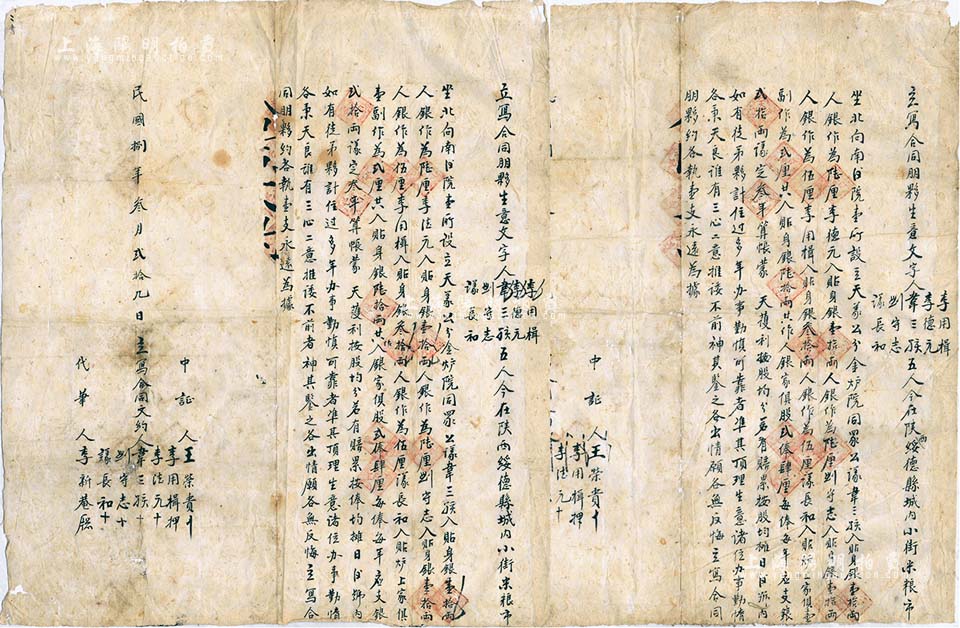 立寫合同朋夥生意文字人韋三孩五人今在陝西綏德縣城内小街米粮市
李用楫
李德元
刘守志
議長和
坐北向南旧院壹所設立天義公分金炉院同眾公議韋三孩入貼身銀壹拾兩
人銀作為陸厘李德元入貼身銀壹拾兩人銀作為陸厘刘守志入貼身銀壹拾兩
人銀作為伍厘李用楫入貼身銀叁拾兩人銀作為伍厘議長和入貼炉上家俱壹
副作為弍厘共入貼身銀陸拾兩共作人銀家俱股弍俸肆厘每俸每年應支銀
弍拾兩議定叁年算帳蒙天獲利按股均分若有賠累按股均摊日後號内
如有徒弟夥計住过多年办事勤慎可靠者準其頂理生意諸位办事勤惰
各秉天良誰有三心二意推诿不前者神其鑒之各出情願各無反悔立寫合同
朋夥約各執壹支永遠為據
中証人王荣貴十
李用楫押
李德元十
立寫合同朋夥生意文字人韋三孩五人今在陝西綏德縣城内小街米粮市
李用楫
李德元
刘守志
議長和
坐北向南旧院壹所設立天義公分金炉院同眾公議韋三孩入貼身銀壹拾兩
人銀作為陸厘李德元入貼身銀壹拾兩人銀作為陸厘刘守志入貼身銀壹拾兩
人銀作為伍厘李用楫入貼身銀叁拾兩人銀作為伍厘議長和入貼炉上家俱
壹副作為弍厘共入貼身銀陸拾兩共入銀家俱股弍俸肆厘每俸每年應支銀
弍拾兩議定叁年算帳蒙天獲利按股均分若有賠累按俸均摊日後號内
如有徒弟夥計住过多年办事勤慎可靠者準其頂理生意諸位办事勤惰
各秉天良誰有三心二意推诿不前者神其鑒之各出情願各無反悔立寫合
同朋夥約各執壹支永遠為據
中証人王荣貴十
李用楫押
李德元十
民國捌年叁月弍拾九日立寫合同文約人韋三孩十
刘守志十
議長和十
代筆人李新菴
上海陽明拍賣